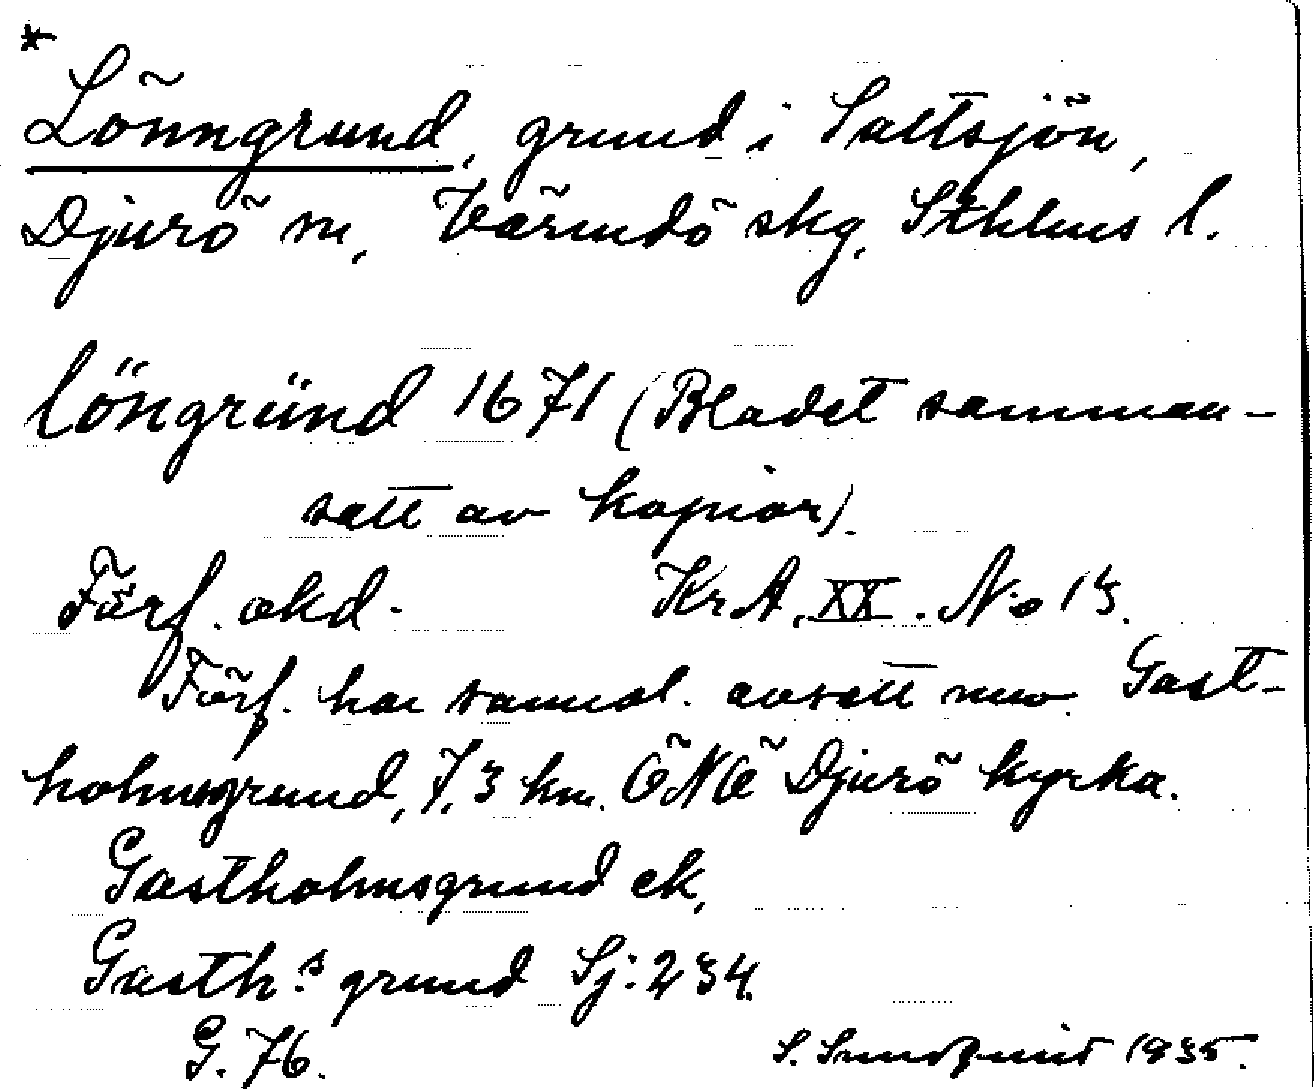 *
Lönngrund, grund i Saltsjön,
Djurö sn, Värmdö skg, Sthlms l.
löngründ 1671 (Bladet samman-
satt av kopior).
Förf. okd. Kr A, XX. N:o 13.
Förf. har sannol. avsett nuv. Gast-
holmsgrund, 7,3 km. ÖNÖ Djurö kyrka.
Gastholmsgrund ek,
Gasth:s grund Sj: 234.
G. 76.
S. Sundquist 1935.